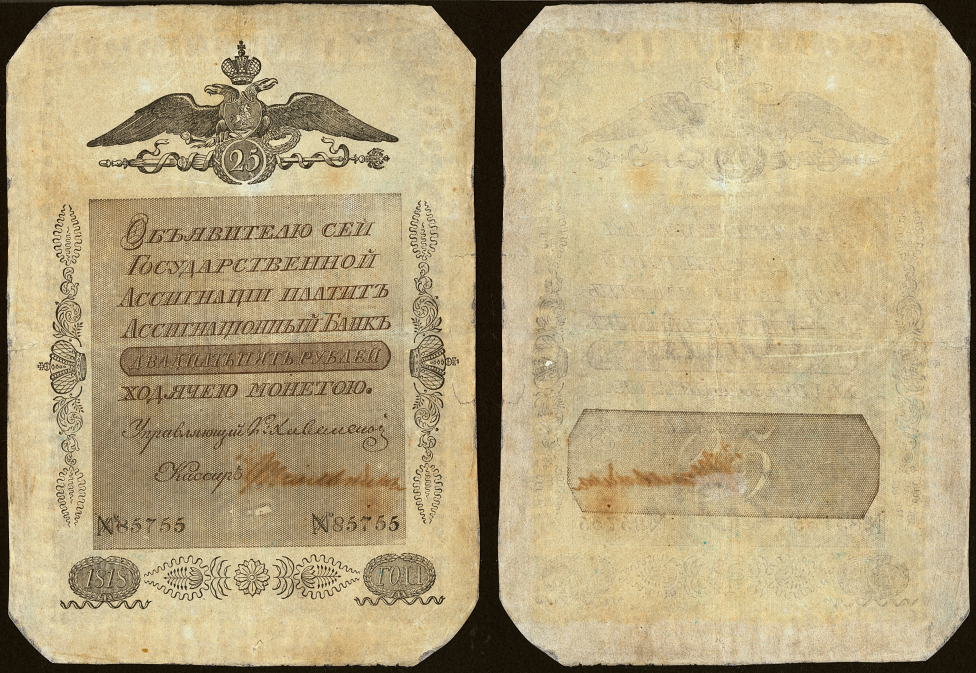 25
Объявителю сей
Государственной
Ассигнаціи платитъ
Ассигнаціонный Банкъ
двадцать пять рублей
ходячею монетою.
Управляющій
Кассиръ
№85755 №85755
1818 года
25